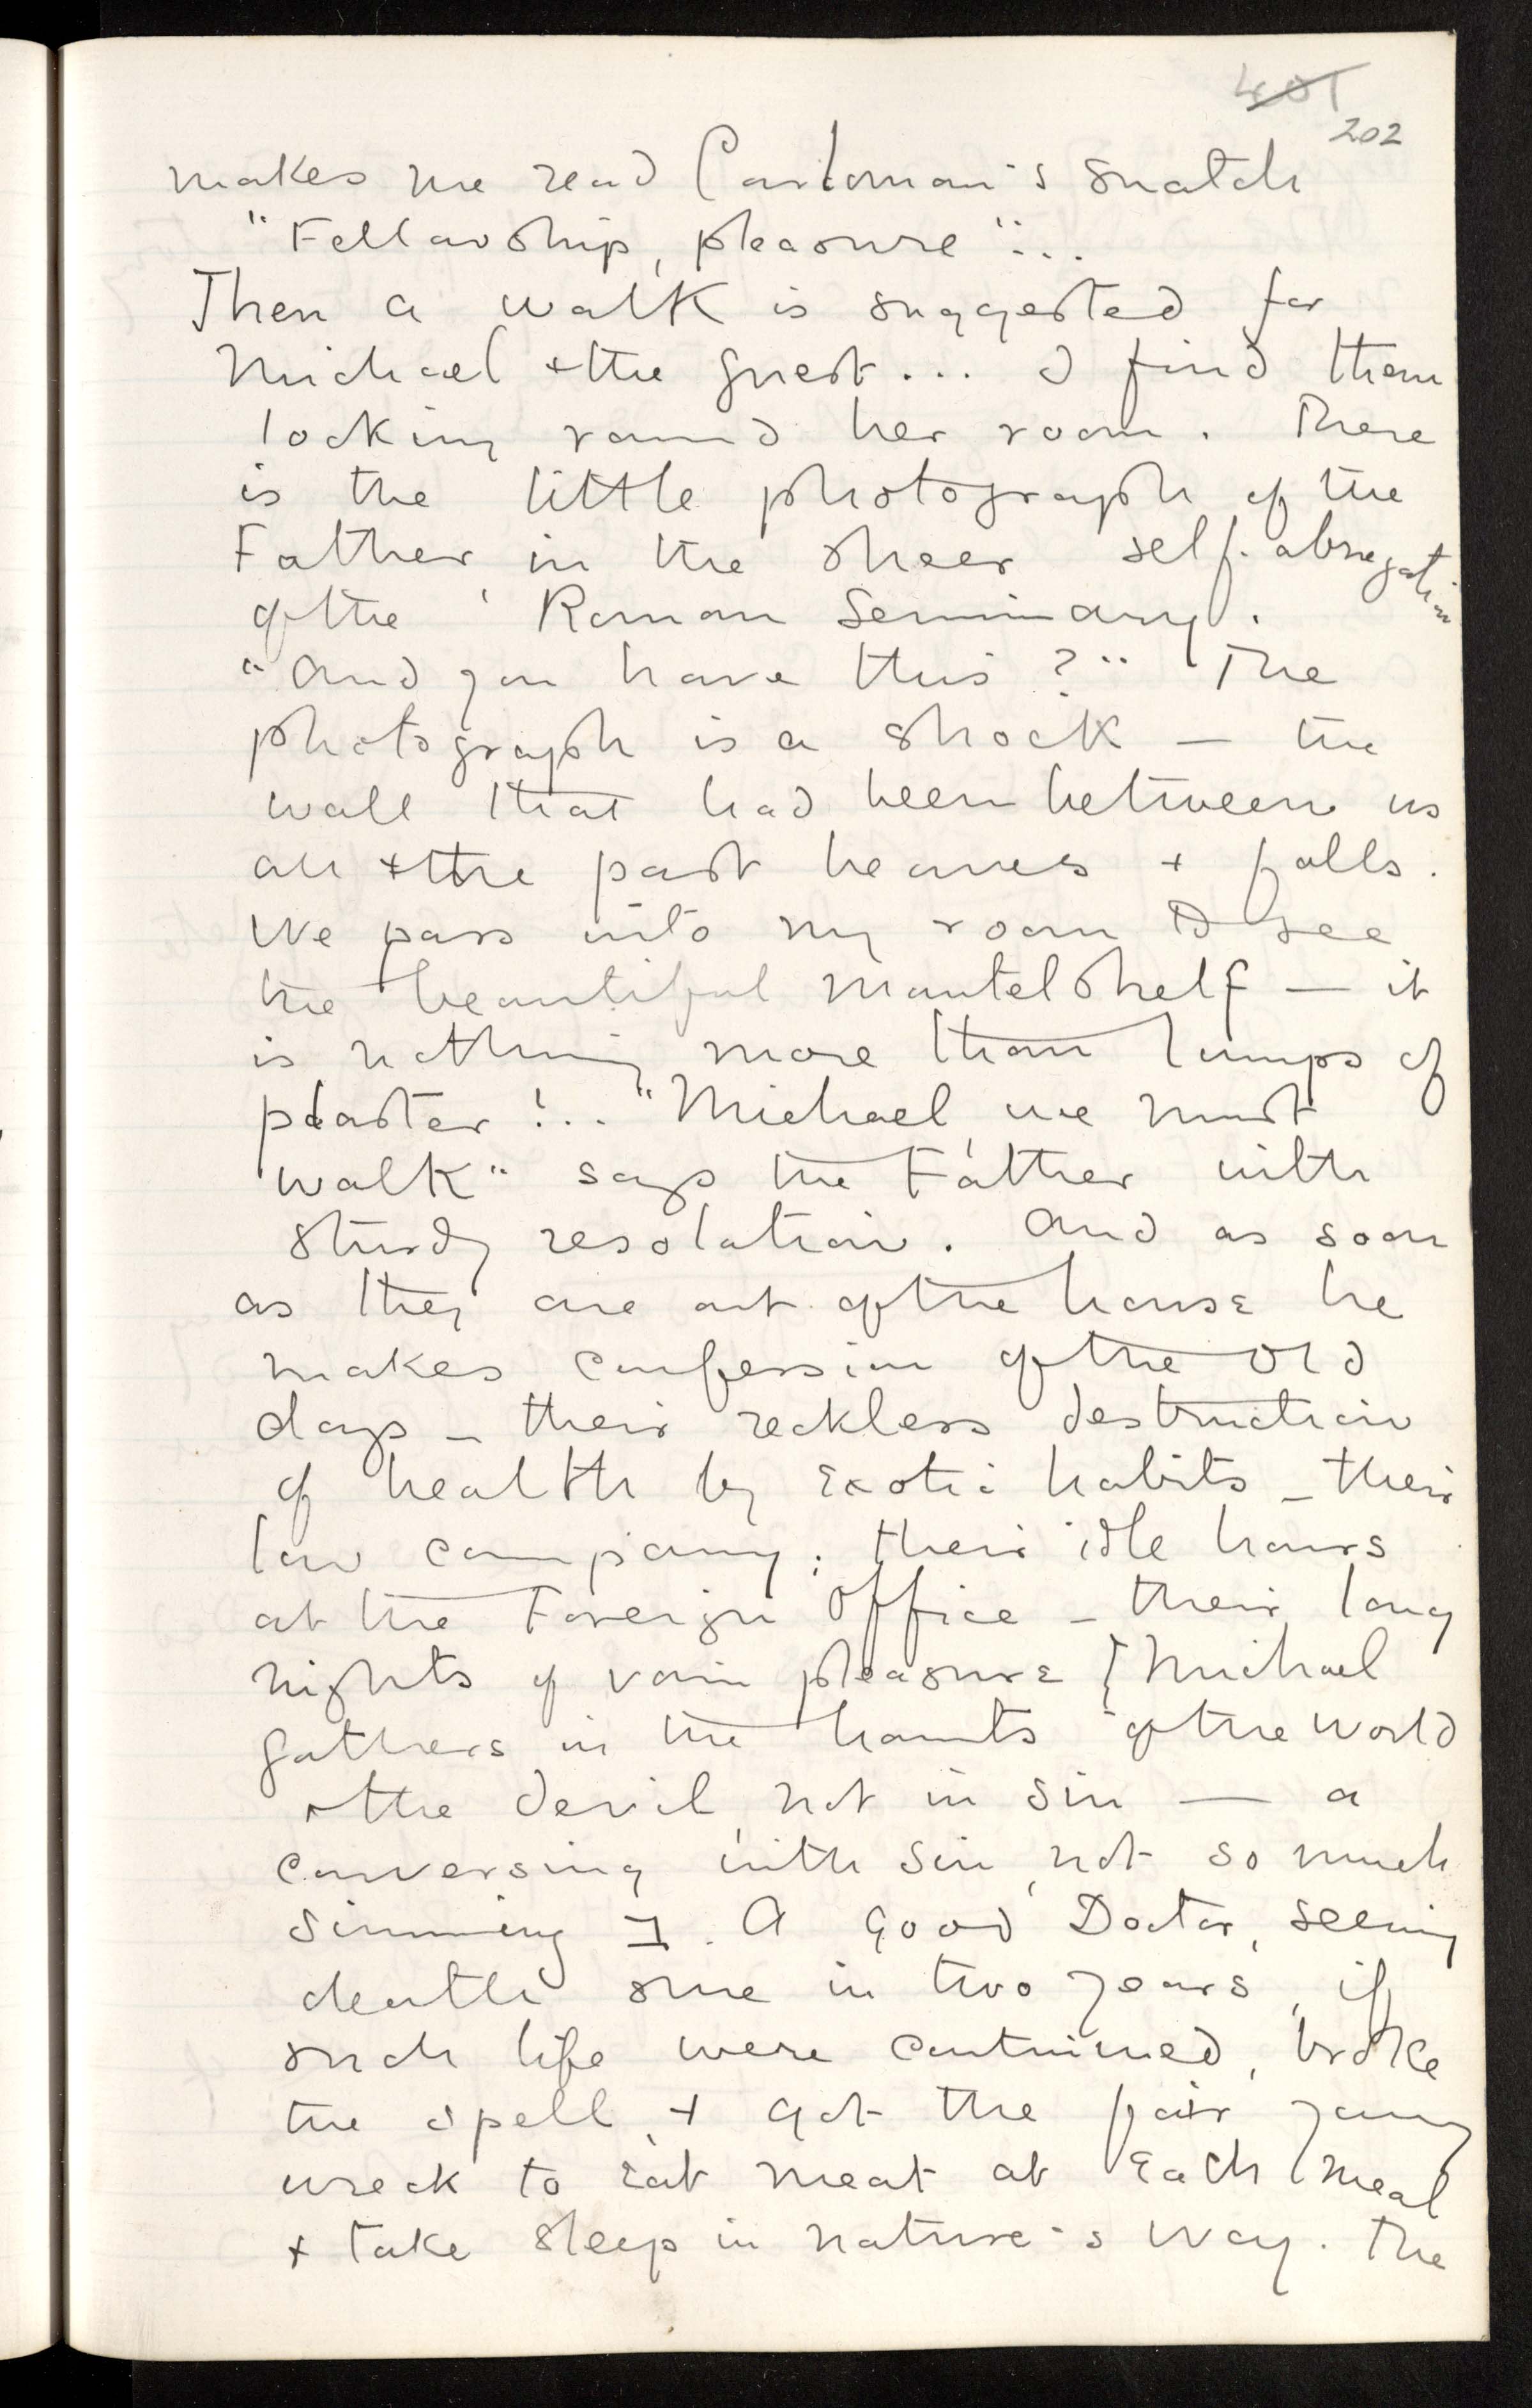 401
202
makes me read Carloman's snatch
"Fellowship, pleasure"...
Then a walk is suggested for
Michael & the guest... I find them
looking round her room. There
is the little photograph of the
Father, in the sheer self-abnegation
of the Roman Seminary.
"And you have this?" The
photograph is a shock — the
wall that had been between us
all & the past heaves & falls.
We pass into my room to see
the beautiful mantelshelf — it
is nothing more than lumps of
plaster!.. "Michael, we must
walk" says the Father with
sturdy resolution. And as soon
as they are out of the house he
makes confession of the old
days – their reckless destruction
of health by exotic habits – their
low company; their idle hours
at the Foreign Office – their long
nights of vain pleasure [Michael
gathers in the haunts of the world
& the devil, not in sin — a
conversing with sin, not so much
sinning]. A good Doctor, seeing
death sure in two years, if
such life were continued, broke
the spell, & got the fair young
wreck to eat meat at each meal
& take sleep in nature's way. The